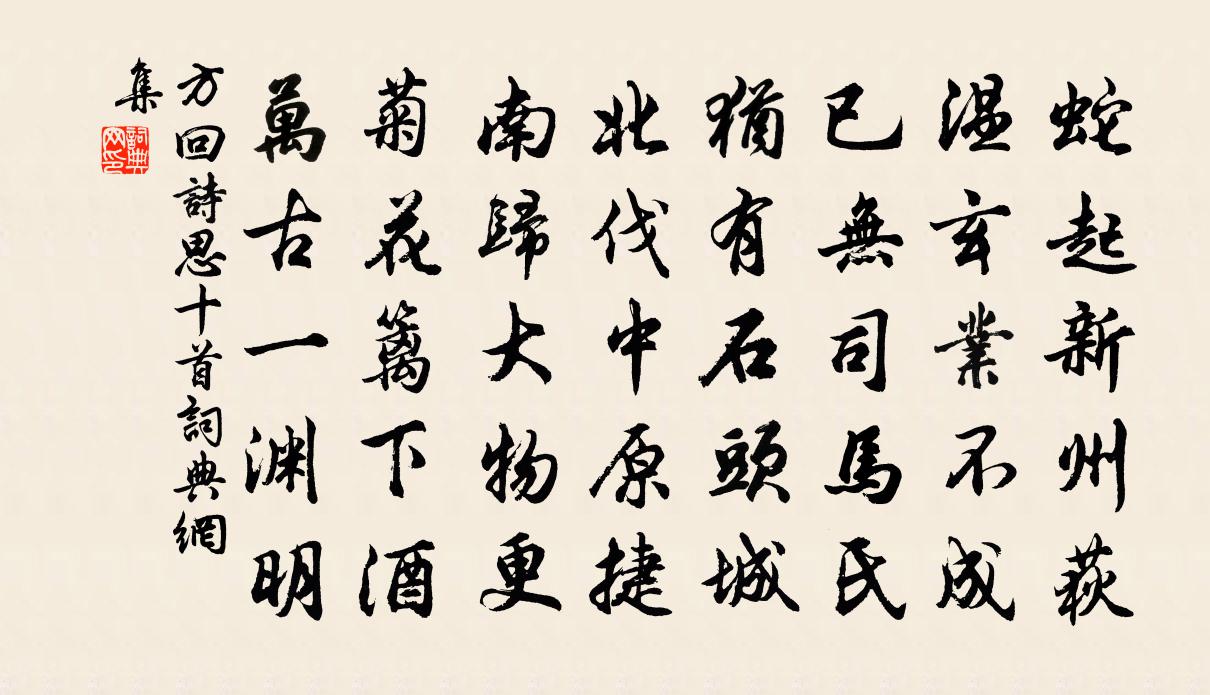 蛇起新州荻
温玄業不成
已無司馬氏
猶有石頭城
北伐中原捷
南歸大物更
菊花籬下酒
萬古一渊明
方回詩思十首詞典網
集
詞典
网印